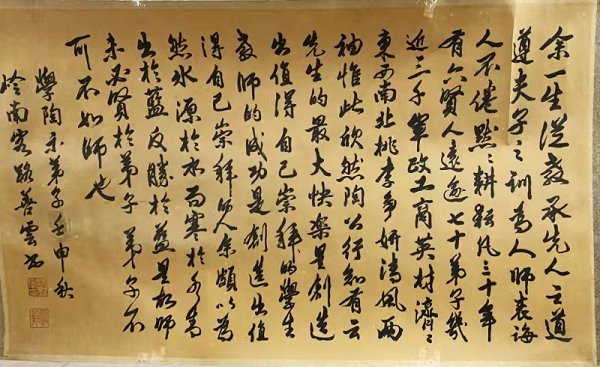 余一生從教承先人之道
遵夫子之訓為人師表誨
人不倦默々耕耘凡三十年
有六賢人遠邇七十弟子幾
近三千軍政工商英材濟々
東西南北桃李爭妍清風兩
袖惟此欣然陶公行知有云
先生的最大快樂是創造
出值得自己崇拜的學生
教師的成功是創造出值
得自己崇拜的人余頗以為
然冰源於水而寒於水青
出於藍反勝於藍是故師
未必賢於弟子弟子不
可不如師也
學陶弟子壬申秋
嶺南客路善雲書